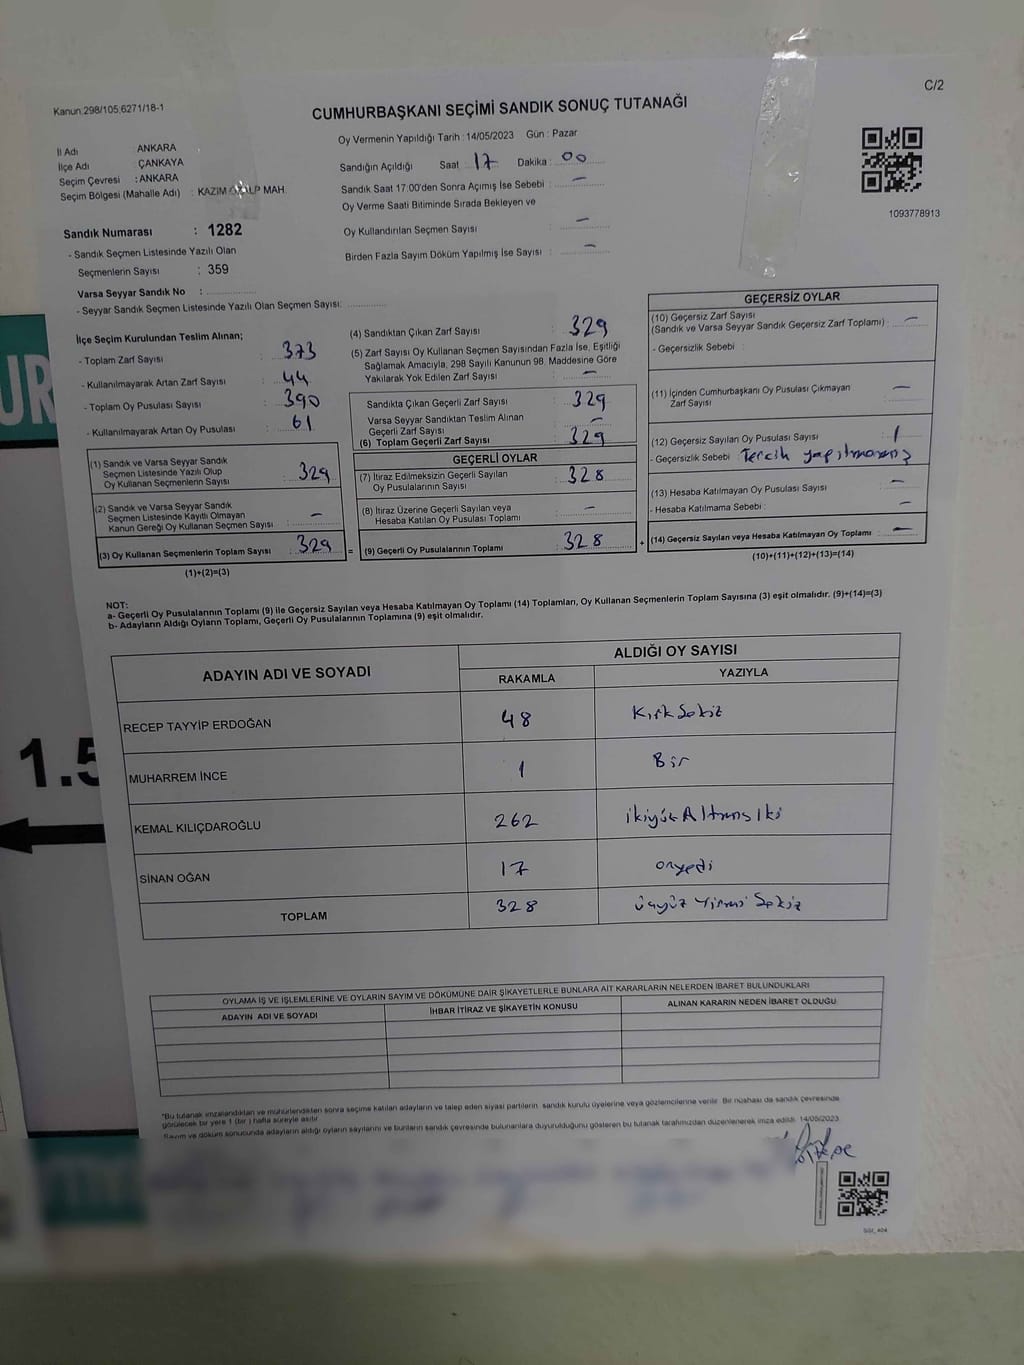 Kanun 298/105,6271/18-1
C/2
CUMHURBAŞKANI SEÇİMİ SANDIK SONUÇ TUTANAĞI
Oy Vermenin Yapıldığı Tarih : 14/05/2023 Gün : Pazar
İl Adı : ANKARA
İlçe Adı : ÇANKAYA
Seçim Çevresi : ANKARA
Seçim Bölgesi (Mahalle Adı) : KAZIM MAH.
Sandığın Açıldığı Saat 17 Dakika : 00
Sandık Saat 17:00'den Sonra Açımış İse Sebebi : –
Oy Verme Saati Bitiminde Sırada Bekleyen ve
Oy Kullandırılan Seçmen Sayısı : –
Birden Fazla Sayım Döküm Yapılmış İse Sayısı : –
1093778913
Sandık Numarası : 1282
- Sandık Seçmen Listesinde Yazılı Olan
Seçmenlerin Sayısı : 359
Varsa Seyyar Sandık No :
- Seyyar Sandık Seçmen Listesinde Yazılı Olan Seçmen Sayısı:
İlçe Seçim Kurulundan Teslim Alınan;
- Toplam Zarf Sayısı : 373
- Kullanılmayarak Artan Zarf Sayısı : 44
- Toplam Oy Pusulası Sayısı : 390
- Kullanılmayarak Artan Oy Pusulası : 61
(1) Sandık ve Varsa Seyyar Sandık
Seçmen Listesinde Yazılı Olup
Oy Kullanan Seçmenlerin Sayısı : 329
(2) Sandık ve Varsa Seyyar Sandık
Seçmen Listesinde Kayıtlı Olmayan
Kanun Gereği Oy Kullanan Seçmen Sayısı : –
(3) Oy Kullanan Seçmenlerin Toplam Sayısı : 329
(1)+(2)=(3)
(4) Sandıktan Çıkan Zarf Sayısı : 329
(5) Zarf Sayısı Oy Kullanan Seçmen Sayısından Fazla İse, Eşitliği
Sağlamak Amacıyla, 298 Sayılı Kanunun 98. Maddesine Göre
Yakılarak Yok Edilen Zarf Sayısı : –
Sandıkta Çıkan Geçerli Zarf Sayısı : 329
Varsa Seyyar Sandıktan Teslim Alınan
Geçerli Zarf Sayısı : –
(6) Toplam Geçerli Zarf Sayısı : 329
GEÇERLİ OYLAR
(7) İtiraz Edilmeksizin Geçerli Sayılan
Oy Pusulalarının Sayısı : 328
(8) İtiraz Üzerine Geçerli Sayılan veya
Hesaba Katılan Oy Pusulası Toplamı : –
= (9) Geçerli Oy Pusulalarının Toplamı : 328 +
GEÇERSİZ OYLAR
(10) Geçersiz Zarf Sayısı
(Sandık ve Varsa Seyyar Sandık Geçersiz Zarf Toplamı) : –
- Geçersizlik Sebebi :
(11) İçinden Cumhurbaşkanı Oy Pusulası Çıkmayan
Zarf Sayısı : –
(12) Geçersiz Sayılan Oy Pusulası Sayısı : 1
- Geçersizlik Sebebi : Tercih yapılmamış
(13) Hesaba Katılmayan Oy Pusulası Sayısı : –
- Hesaba Katılmama Sebebi : –
(14) Geçersiz Sayılan veya Hesaba Katılmayan Oy Toplamı : –
(10)+(11)+(12)+(13)=(14)
NOT:
a- Geçerli Oy Pusulalarının Toplamı (9) ile Geçersiz Sayılan veya Hesaba Katılmayan Oy Toplamı (14) Toplamları, Oy Kullanan Seçmenlerin Toplam Sayısına (3) eşit olmalıdır. (9)+(14)=(3)
b- Adayların Aldığı Oyların Toplamı, Geçerli Oy Pusulalarının Toplamına (9) eşit olmalıdır.
ADAYIN ADI VE SOYADI
ALDIĞI OY SAYISI
RAKAMLA YAZIYLA
RECEP TAYYİP ERDOĞAN 48 Kırk Sekiz
MUHARREM İNCE 1 Bir
KEMAL KILIÇDAROĞLU 262 ikiyüz Altmış İki
SİNAN OĞAN 17 onyedi
TOPLAM 328 üçyüz Yirmi Sekiz
OYLAMA İŞ VE İŞLEMLERİNE VE OYLARIN SAYIM VE DÖKÜMÜNE DAİR ŞİKAYETLERLE BUNLARA AİT KARARLARIN NELERDEN İBARET BULUNDUKLARI
ADAYIN ADI VE SOYADI İHBAR İTİRAZ VE ŞİKAYETİN KONUSU ALINAN KARARIN NEDEN İBARET OLDUĞU
*Bu tutanak imzalandıktan ve mühürlendikten sonra seçime katılan adayların ve talep eden siyasi partilerin sandık kurulu üyelerine veya gözlemcilerine verilir. Bir nüshası da sandık çevresinde
görülecek bir yere 1 (bir) hafta süreyle asılır.
Sayım ve döküm sonucunda adayların aldığı oyların sayılarını ve bunların sandık çevresinde bulunanlara duyurulduğunu gösteren bu tutanak tarafımızdan düzenlenerek imza edildi. 14/05/2023
UR
1.5